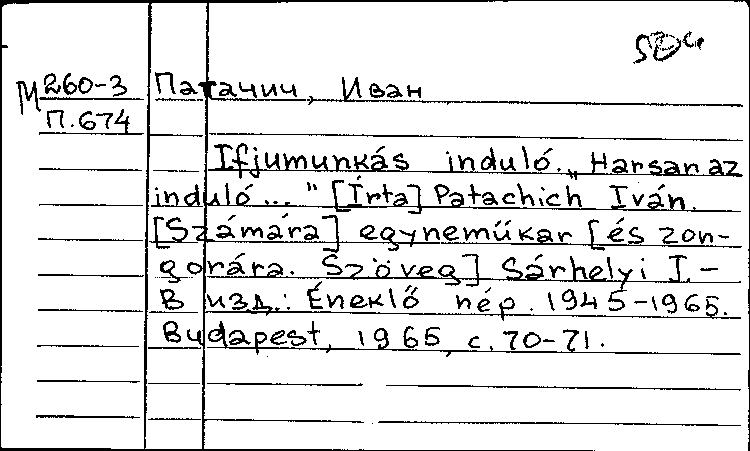 М 260-3 Патачич, Иван
П.674
Ifjumunkás induló. „Harsan az
induló..." [Írta] Patachich Iván.
[Számára] egyneműkar [és zon-
gorára. Szöveg] Sárhelyi I. -
В изд.: Éneklő nép. 1945-1965.
Budapest, 1965, с. 70-71.